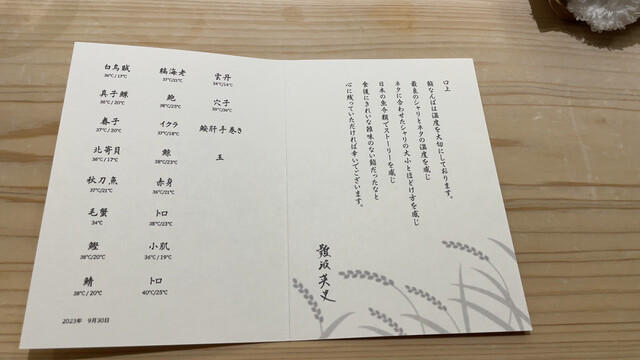 白烏賊
36℃/17℃
真子鰈
36℃/20℃
春子
37℃/20℃
北寄貝
36℃/17℃
秋刀魚
37℃/21℃
毛蟹
34℃
鰹
38℃/20℃
鯖
38℃/20℃
縞海老
鮑
38℃/23℃
イクラ
37℃/18℃
38℃/23℃
赤身
36℃/21℃
トロ
38℃/23℃
小肌
36℃/19℃
トロ
40℃/25℃
雲丹
34℃/14℃
穴子
鮟肝手巻き
玉
2023年 9月30日
口上
鮨なんばは温度を大切にしております。
最良のシャリとネタの温度を感じ
ネタに合わせたシャリの大小とほどけ方を感じ
日本の魚介類でストーリーを感じ
食後にきれいな雑味のない鮨だったなと
心に残っていただければ幸いでございます。
難波英史